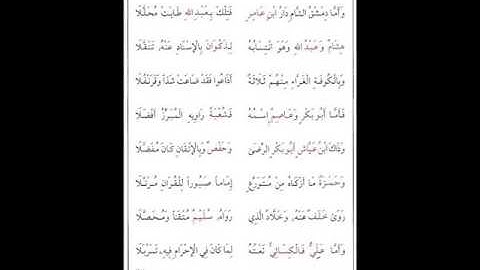 وَأَمَّا دِمَشْقُ الشَّامِ دَارُ ابْنِ عَامِرٍ فَتِلْكَ بِعَبْدِ اللهِ طَابَتْ مُحَلَّلَا
هِشَامٌ وَعَبْدُ اللهِ وَهْوَ انْتِسَابُهُ لِذَكْوَانَ بِالْإِسْنَادِ عَنْهُ تَنَقَّلَا
وَبِالْكُوفَةِ الْغَرَّاءِ مِنْهُمْ ثَلَاثَةٌ أَذَاعُوا فَقَدْ ضَاعَتْ شَذًا وَقَرَنْفُلَا
فَأَمَّا أَبُو بَكْرٍ وَعَاصِمٌ اسْمُهُ فَشُعْبَةُ رَاوِيهِ الْمُبَرِّزُ أَفْضَلَا
وَذَاكَ ابْنُ عَيَّاشٍ أَبُو بَكْرٍ الرِّضَى وَحَفْصٌ وَبِالْإِتْقَانِ كَانَ مُفَضَّلَا
وَحَمْزَةُ مَا أَزْكَاهُ مِنْ مُتَوَرِّعٍ إِمَاماً صَبُوراً لِلْقُرَانِ مُرَتِّلَا
رَوَى خَلَفٌ عَنْهُ وَخَلَّادٌ الَّذِي رَوَاهُ سُلَيْمٌ مُتْقَناً وَمُحَصَّلَا
وَأَمَّا عَلِيٌّ فَالْكِسَائِيُّ نَعْتُهُ لِمَا كَانَ فِي الْإِحْرَامِ فِيهِ تَسَرْبَلَا